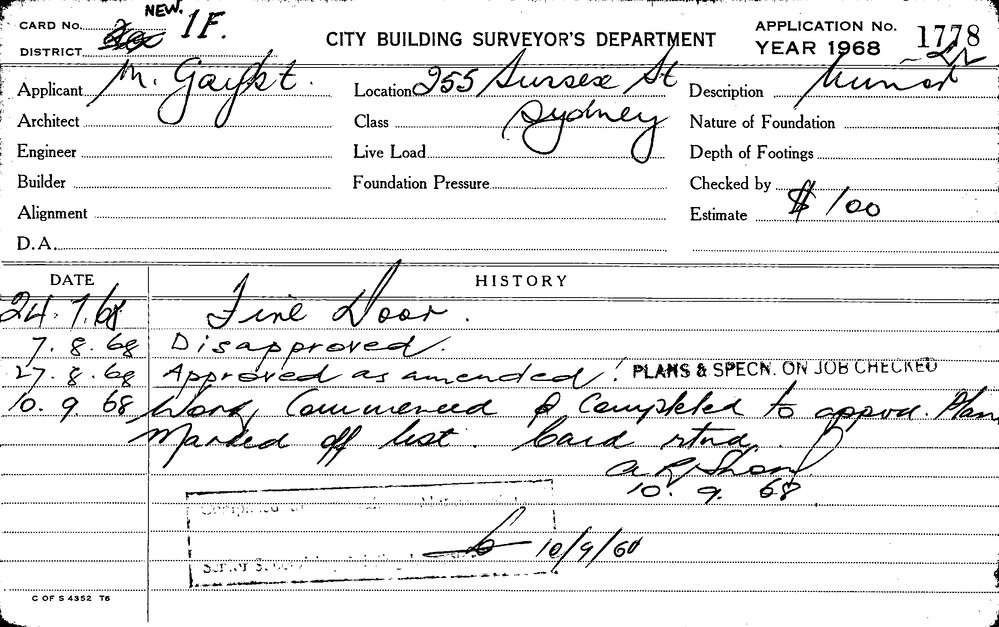 CARD No. NEW. 1F.
DISTRICT
CITY BUILDING SURVEYOR'S DEPARTMENT
APPLICATION No. 1778
YEAR 1968
Applicant M.
Location 255 Sussex St
Description
Architect
Class Sydney
Nature of Foundation
Engineer
Live Load
Depth of Footings
Builder
Foundation Pressure
Checked by
Alignment
Estimate $ 100
D.A.
DATE HISTORY
24.7.68 Fire Door.
7.8.68 Disapproved.
27.8.68 Approved as amended! PLANS & SPECN. ON JOB CHECKED
10.9.68 Work Commenced & Completed to approv. Plan
Marked off list. Card rtnd.
10.9.68
10/9/68
C OF S 4352 T6